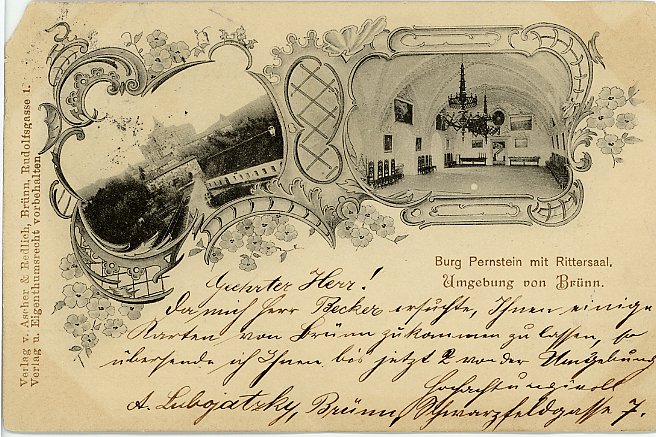 Verlag v. Ascher & Redlich, Brünn, Rudolfsgasse 1.
Verlag u. Eigenthumsrecht vorbehalten.
Burg Pernstein mit Rittersaal.
Umgebung von Brünn.
Geehrter Herr!
Da mich Herr Becker ersuchte, Ihnen einige
Karten von Brünn zukommen zu lassen, so
übersende ich Ihnen bis jetzt 2 von der Umgebung
Hochachtungsvoll
A. Lubojatzky, Brünn, Schwarzfeldgasse 7.